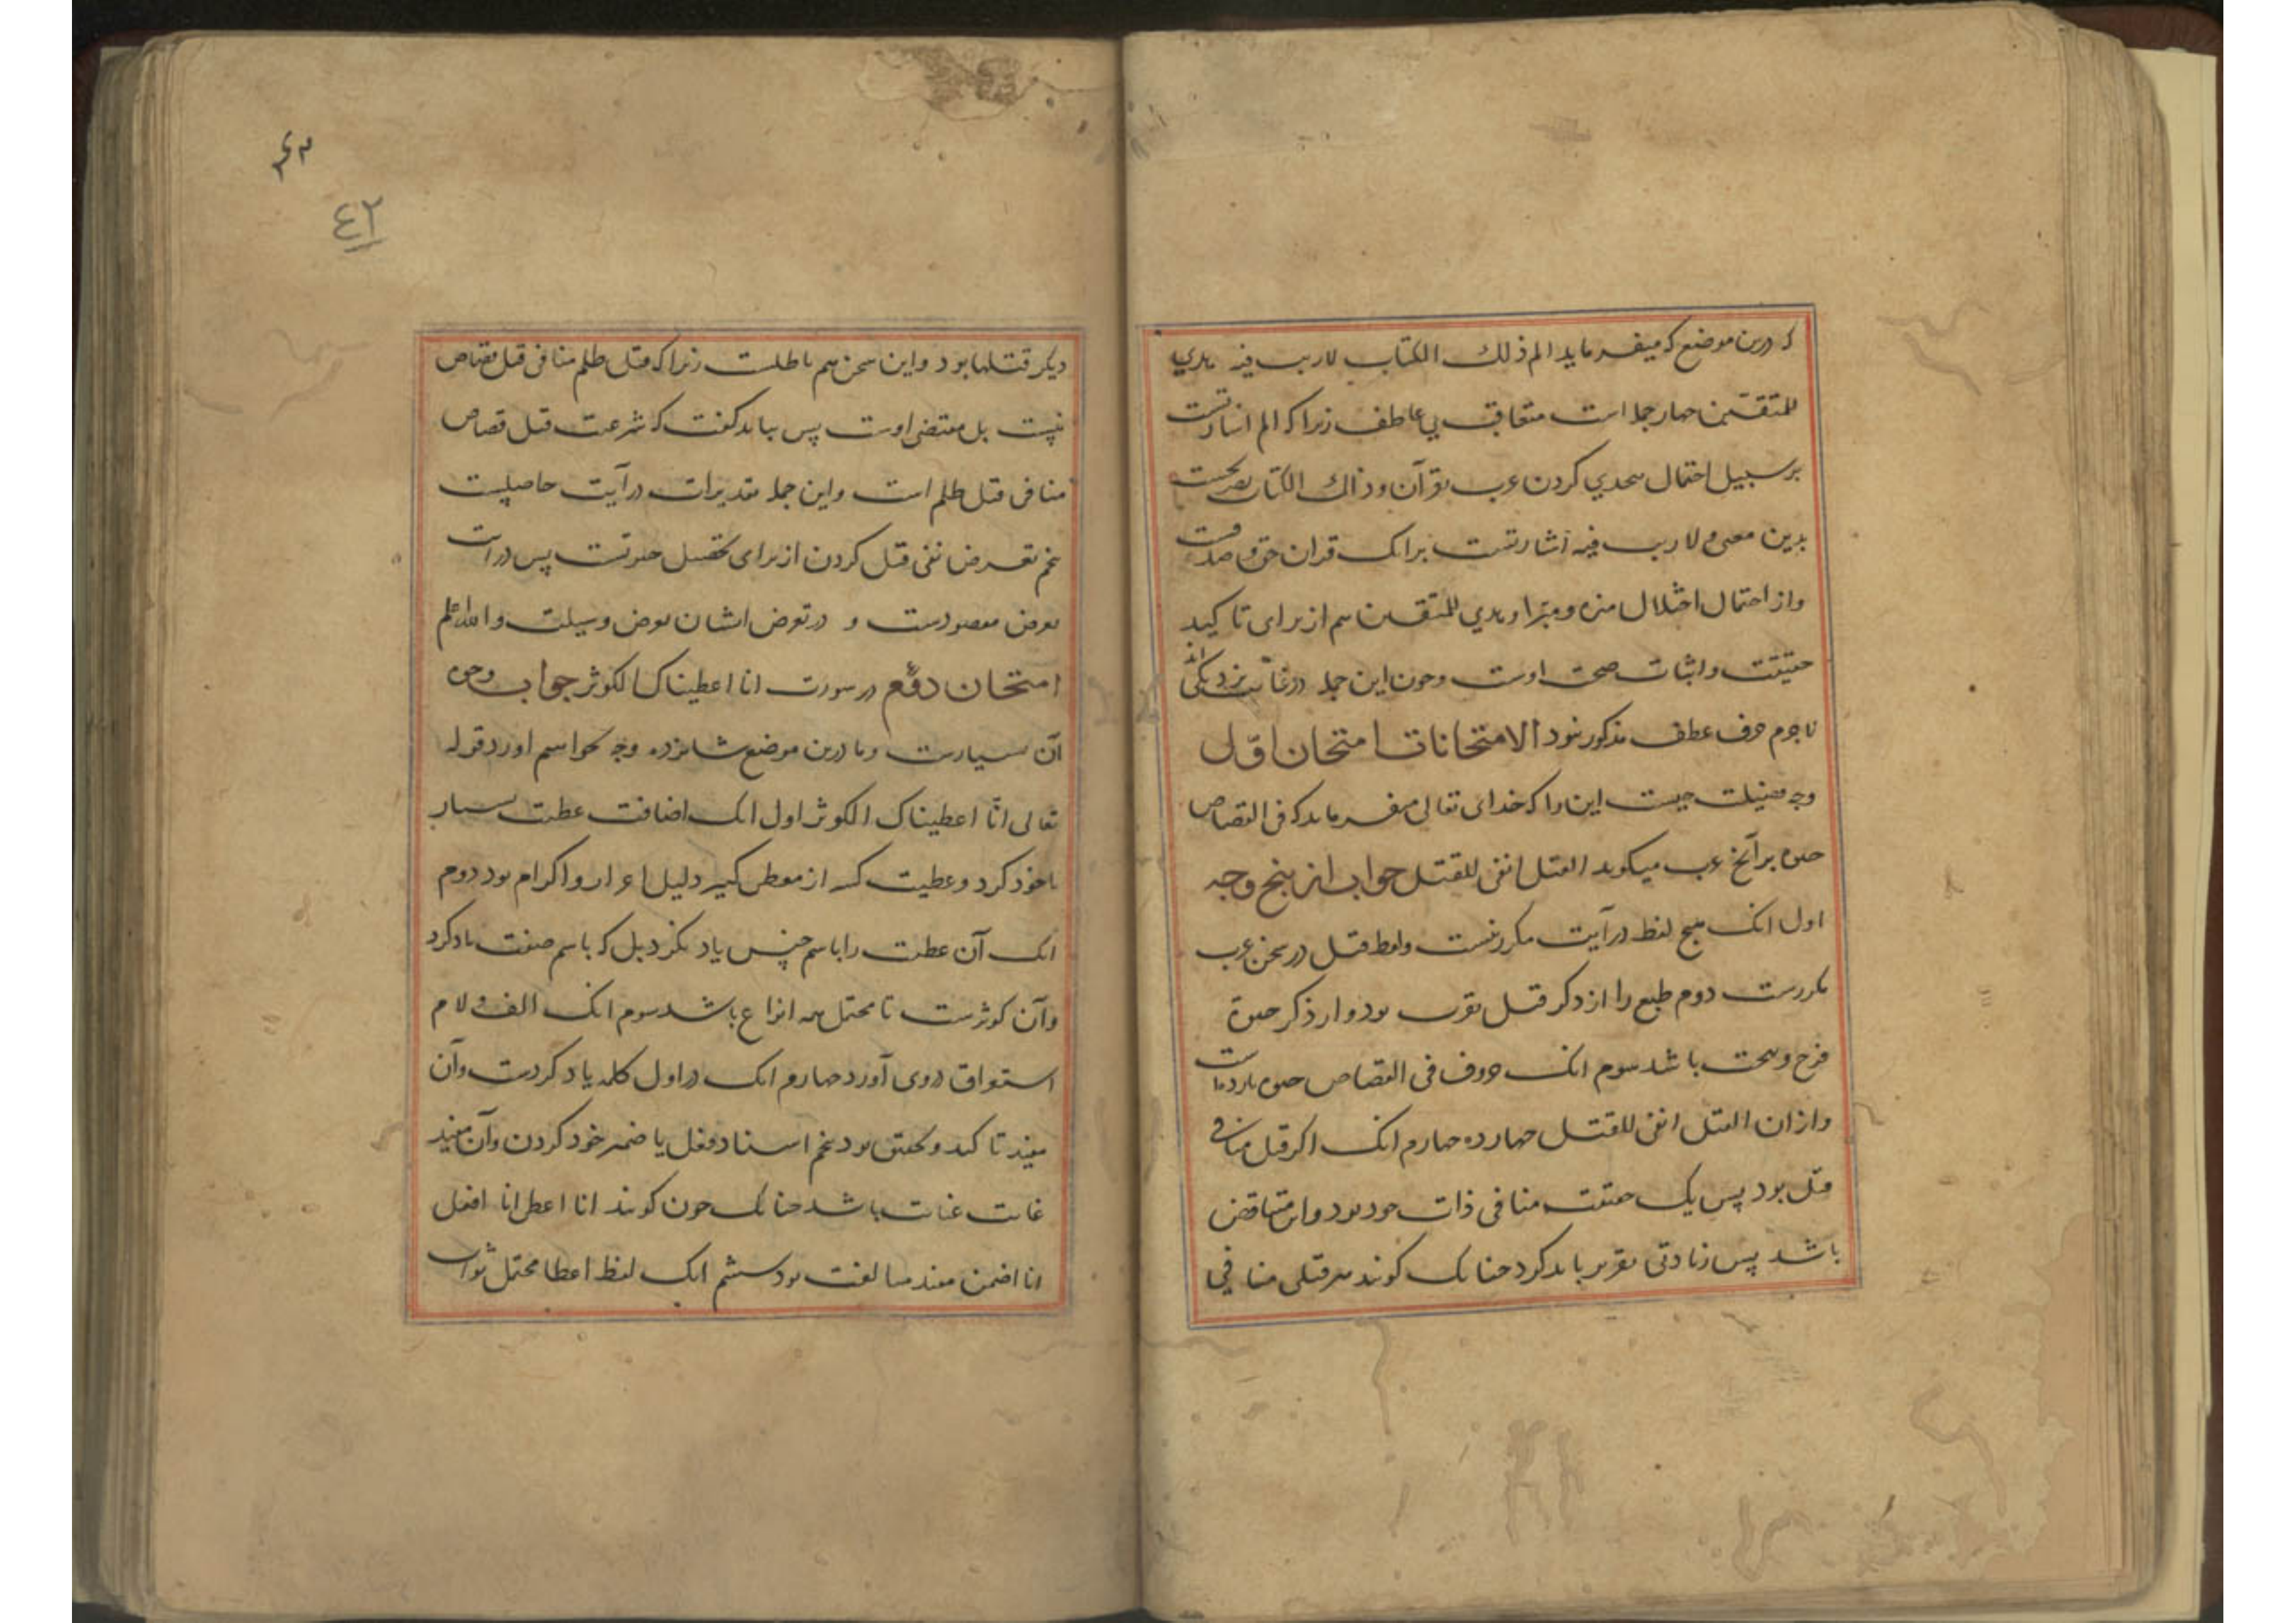 که درین موضع که میفرماید الم ذلك الكتاب لاریب فیه هدی
للمتقین چهار جمله است متعاقب بی عاطف زیرا که الم اشارتست
بر سبیل احتمال تحدی کردن عرب بقرآن و ذالك الكتاب تصریحست
بدین معنی و لاریب فیه اشارتست برانک قران حق و صدقست
و از احتمال اختلال منزه و مبرا و هدی للمتقین هم از برای تاکید
حقیقت و اثبات صحت اوست و چون این جمله در غایت نزدیکی اند
لاجرم حرف عطف مذکور نبود الامتحانات امتحان اوّل
وجه فضیلت چیست این را که خدای تعالی میفرماید که فی القصاص
حیوة بر آنچ عرب میکوید القتل انفی للقتل جواب از پنج وجه
اول انک هیچ لفظ در آیت مکرر نیست و لفظ قتل در سخن عرب
مکررست دوم طبع را از ذکر قتل نفرت بود و از ذکر حیوة
فرح و بهجت باشد سوم انک حروف فی القصاص حیوة
و ازان القتل انفی للقتل چهارده چهارم انک اکر قتل منافی
قتل بود پس یک حقیقت منافی ذات خود بود و این متناقض
باشد پس زیادتی تقریر باید کرد چنانک کویند هر قتلی منافی
٤٢
دیکر قتلها بود و این سخن هم باطلست زیرا که قتل ظلم منافی قتل قصاص
نیست بل مقتضی اوست پس بباید کفت که شرعیت قتل قصاص
منافی قتل ظلم است و این جمله تقدیرات در آیت حاصلیست
پنجم تعرض نفی قتل کردن از برای تحصیل حیوتست پس در آیت
تعرض مقصودست و در تعرض ایشان تعرض وسیلت والله اعلم
امتحان دوّم در سورت انا اعطیناک الکوثر جواب وجوه
آن بسیارست و ما درین موضع شانزده وجه بخواهیم اورد قوله
تعالی انّا اعطیناک الکوثر اول انک اضافت عطیت بسیار
باخود کرد و عطیت کبیر از معطی کبیر دلیل اعزاز و اکرام بود دوم
انک آن عطیت را باسم جنس یاد نکرد بل که باسم صفت یاد کرد
و آن کوثرست تا محتمل همه انواع باشد سوم انک الف و لام
استغراق دروی آورد چهارم انک در اول کلمه یاد کردست و آن
مفید تاکید و تحقیق بود پنجم اسناد فعل با ضمیر خود کردن و آن مفید
غایت عنایت باشد چنانک چون کویند انا اعطی انا افعل
انا اضمن مفید مبالغت بود ششم انک لفظ اعطا محتمل ثواب